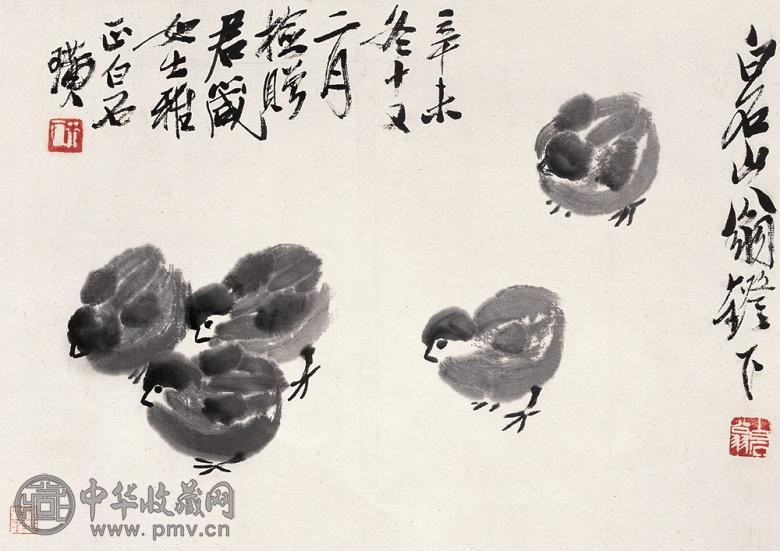 白石山翁鐙下
辛未
冬十又
二月
檢贈
君箴
女士雅
正白石
璜
中华收藏网
www.pmv.cn